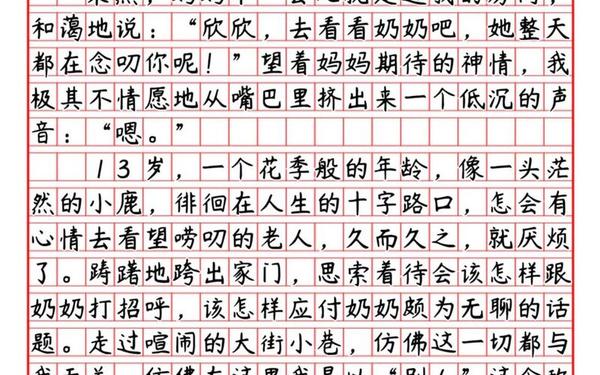 和蔼地说：“欣欣，去看看奶奶吧，她整天
都在念叨你呢！”望着妈妈期待的神情，我
极其不情愿地从嘴巴里挤出来一个低沉的声
音：“嗯。”
13岁，一个花季般的年龄，像一头茫
然的小鹿，徘徊在人生的十字路口，怎会有
心情去看望唠叨的老人，久而久之，就厌烦
了。踌躇地跨出家门，思索着待会该怎样跟
奶奶打招呼，该怎样应付奶奶颇为无聊的话
题。走过喧闹的大街小巷，仿佛这一切都与